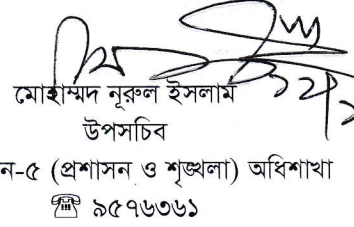 মোহাম্মদ নূরুল ইসলাম
উপসচিব
ন-৫ (প্রশাসন ও শৃঙ্খলা) অধিশাখা
☏ ৯৫৭৬৩৬১